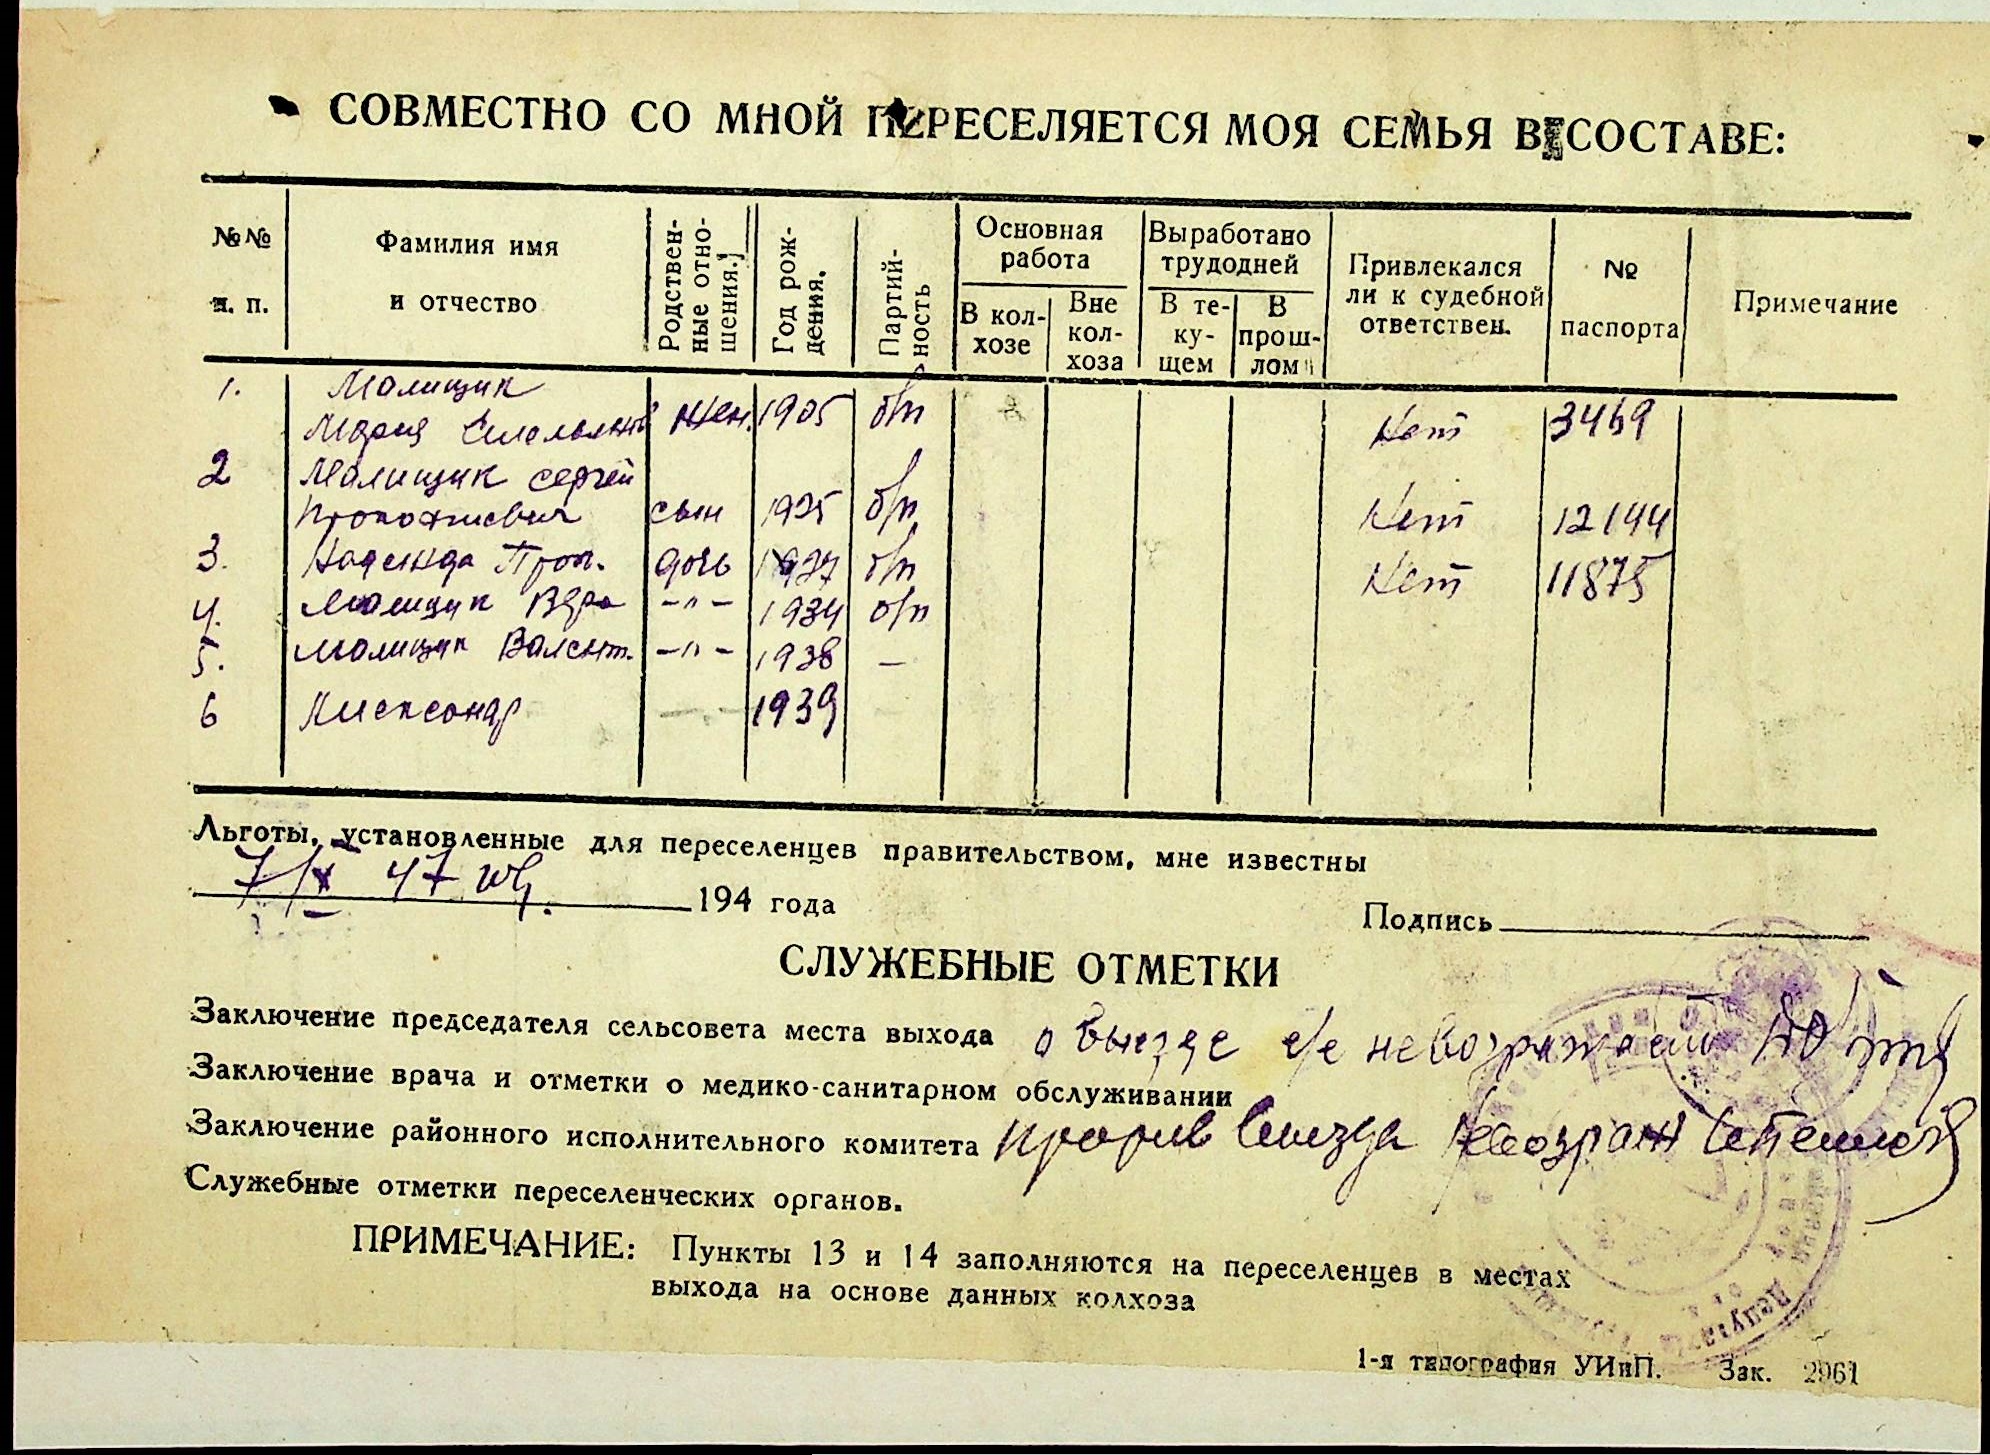 СОВМЕСТНО СО МНОЙ ПЕРЕСЕЛЯЕТСЯ МОЯ СЕМЬЯ В СОСТАВЕ:
№№ п. п.
Фамилия имя и отчество
Родствен-ные отно-шения.
Год рож-дения.
Партий-ность
Основная работа
В кол-хозе
Вне кол-хоза
Выработано трудодней
В те-ку-щем
В прош-лом
Привлекался ли к судебной ответствен.
№ паспорта
Примечание
1. Малищик
Мария жен. 1905 б/п Нет 3469
2 Малищик Сергей
Прокофиевич сын 1925 б/п Нет 12144
3. Надежда Проп. дочь 1927 б/п Нет 11875
4. Малищик Вера -"- 1934 б/п
5. Малищик Валент. -"- 1938 —
6 Александр -"- 1939
Льготы, установленные для переселенцев правительством, мне известны
7/X 47 194 года
Подпись
СЛУЖЕБНЫЕ ОТМЕТКИ
Заключение председателя сельсовета места выхода о выезде с/с не возражает
Заключение врача и отметки о медико-санитарном обслуживании
Заключение районного исполнительного комитета против выезда
Служебные отметки переселенческих органов.
ПРИМЕЧАНИЕ: Пункты 13 и 14 заполняются на переселенцев в местах
выхода на основе данных колхоза
1-я типография УИиП. Зак. 2961